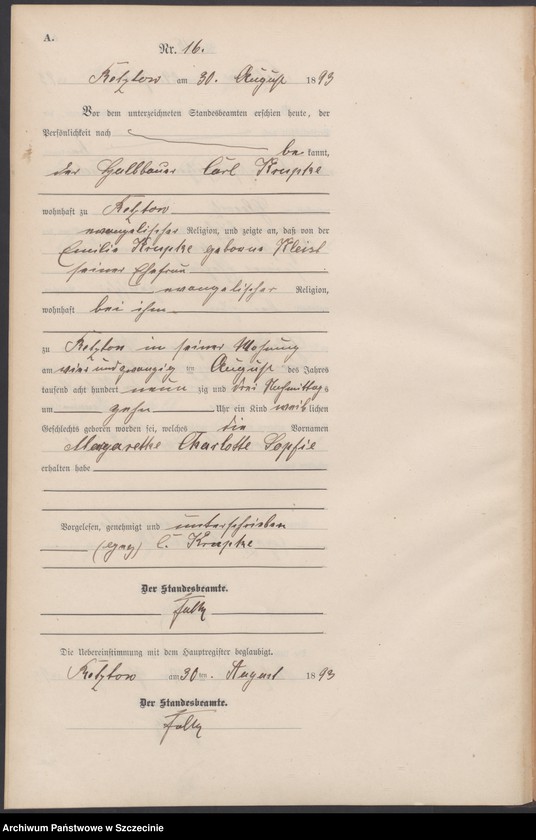 A.
Nr. 16.
Retztow am 30. August 1893
Vor dem unterzeichneten Standesbeamten erschien heute, der
Persönlichkeit nach
be kannt,
der Halbbauer Carl Krupke
wohnhaft zu Retztow
evangelischer Religion, und zeigte an, daß von der
Emilie Krupke geborene Kleist
seiner Ehefrau
evangelischer Religion,
wohnhaft bei ihm
zu Retztow in seiner Wohnung
am vierundzwanzig ten August des Jahres
tausend acht hundert neun zig und drei Nachmittags
um zehn Uhr ein Kind weiblichen
Geschlechts geboren worden sei, welches die Vornamen
Margarethe Charlotte Sophie
erhalten habe
Vorgelesen, genehmigt und unterschrieben
(gez) C. Krupke
Der Standesbeamte.
Die Uebereinstimmung mit dem Hauptregister beglaubigt.
Retztow am 30 ten. August 1893
Der Standesbeamte.
Archiwum Państwowe w Szczecinie